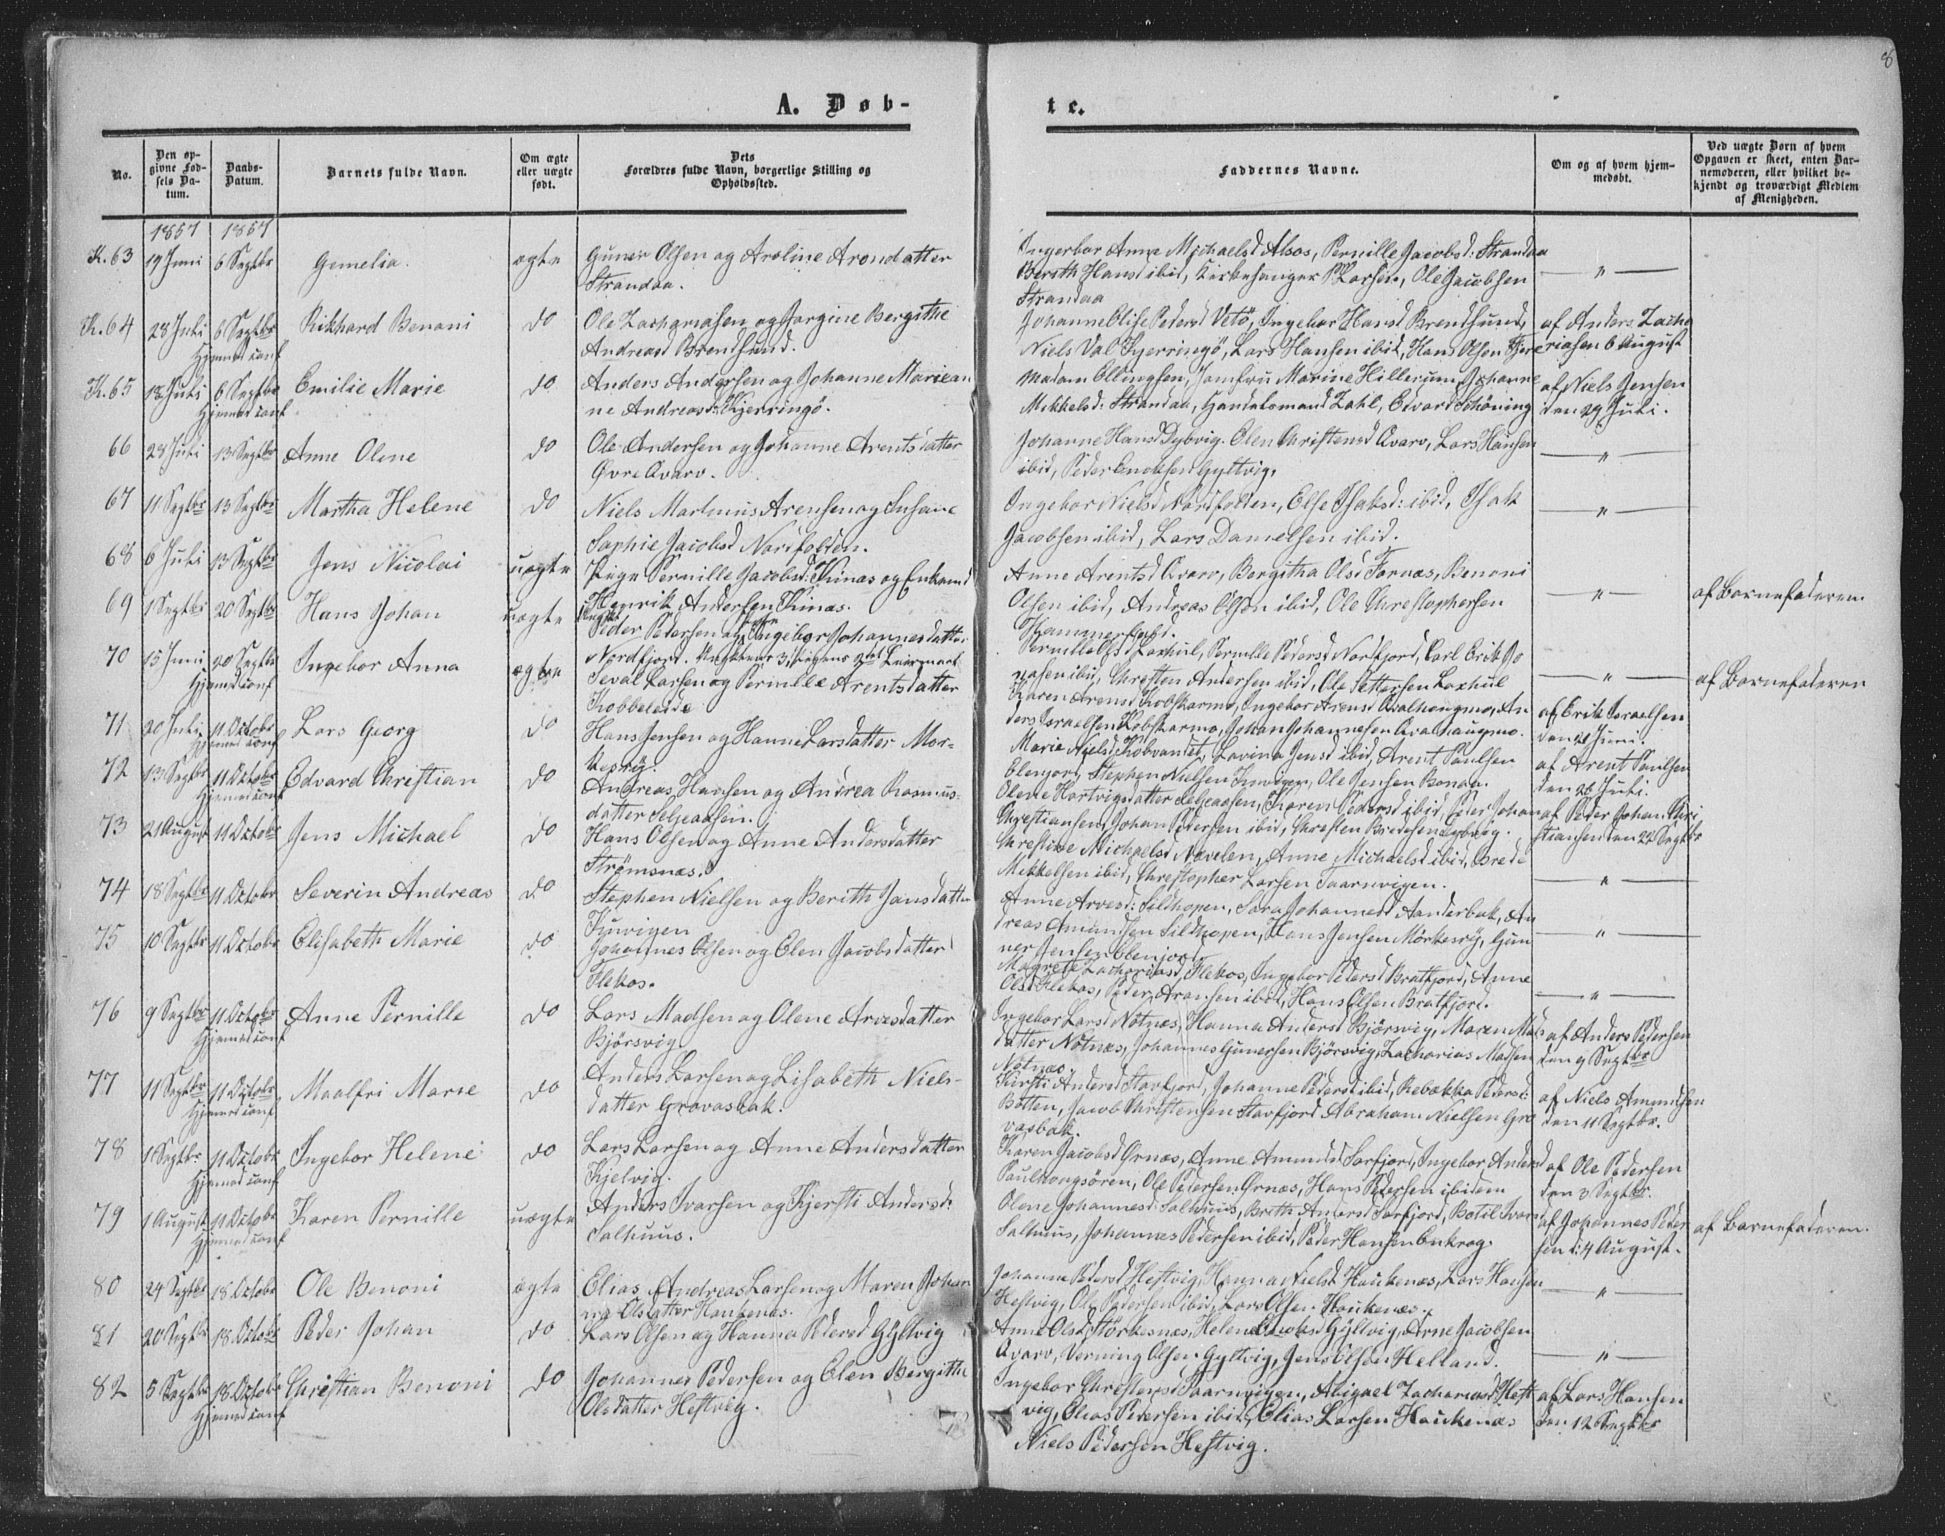 8
A. Døb-
te.
No.
Den op-
givne Fød-
sels Da-
tum.
Daabs-
Datum.
Barnets fulde Navn.
Om ægte
eller uægte
født.
Dets
Forældres fulde Navn, borgerlige Stilling og
Opholdssted.
Faddernes Navne.
Om og af hvem hjem-
medøbt.
Ved uægte Børn af hvem
Opgaven er skeet, enten Bar-
nemoderen, eller hvilket be-
kjendt og troværdigt Medlem
af Menigheden.
1857 1857
K. 63 19 Juni 6 Septbr Gemelia. ægte Guner Olsen og Aroline Arondatter
Strandaa.
Ingerbor Anne Michaelsd Alsos, Pernille Jacobsd: Strandaa
Berith Hansd ibid, Kirkesanger Larsen, Ole Jacobsen
Strandaa
— " —
K. 64 28 Juli 6 Septbr Rikhard Benoni do Ole Zachariasen og Jorgine Bergithe
Hjemed conf Andreasd Brendsund.
Johanne Elise Pedersd Vetö, Ingebor Hansd Brendsund,
Niels Val Kjerringö, Lars Hansen ibid, Hans Olsen Kjere
af Anders Zacha
riasen 6 August
K. 65 18 Juli 6 Septbr Emilie Marie do Anders Andersen og Johanne Marie an
Hjemed conf ne Andreasd: Kjerringö.
Madam Ellingsen, Jomfru Marine Hillerum, Johanne
Mikkelsd: Strandaa, Handelsmand Zahl, Edvard Schöning
af Niels Jensen
den 29 Juli.
66 28 Juli 13 Septbr Anne Olene do Ole Andersen og Johanne Arentsdatter
Övre Qvarv.
Johanne Hansd Dybvig. Olen Christensd Qvarv, Lars Hansen
ibid, Peder Enoksen Gyltvig,
— " —
67 11 Septbr 13 Septbr Martha Helene do Niels Martinus Arensen og Susane
Sophie Jacobsd Nordfolden.
Ingebor Nielsd Nordfolden, Else Isaksd: ibid, Isak
Jacobsen ibid, Lars Danielsen ibid.
— " —
68 6 Juli 13 Septbr Jens Nicolai uægte Pige Pernille Jacobsd: Kinas og Enkemd
Henrik Andersen Kinas.
Anne Arentsd Qvarv, Bergitha Olsd Fornæs, Benoni
Olsen ibid, Andreas Olsen ibid, Ole Christophersen
— " — af Barnefaderen
69 1 Septbr 20 Septbr Hans Johan uægte Peder Pedersen og Ingebor Johannesdatter
Nordfjord.
Pernille Olsd Laxhul, Pernille Pedersd Nordfjord, Carl Erik Jo
nasen ibid, Christen Andersen ibid, Ole Pettersen Laxhul
— " — af Barnefaderen
70 15 Juni 20 Septbr Ingebor Anna ægten Seval Larsen og Pernille Arentsdatter
Hjemed conf Kobbeleide
Karen Arensd Kobskarmo, Ingebor Arensd Qvalhougmo, An
ders Israelsen Kobskarmo, Johan Johannesen Qvalhaugmo.
af Erik Israelsen
den 21 Juni
71 20 Juli 11 Octobr Lars Georg do Hans Jensen og Hanne Larsdatter Mör-
Hjemed conf kesröy.
Marie Nielsd Kobvandet, Lavina Jensd ibid, Arent Paulsen
Elenjord, Stephen Nielsen Kjuvigen, Ole Jensen Bonaa.
af Arent Paulsen
den 26 Juli.
72 13 Septbr 11 Octobr Edvard Christian do Andreas Hansen og Andrea Rasmus-
Hjemed conf datter Seljeaasen.
Olene Hartvigsdatter Seljeaasen, Karen Pedersd ibid, Peder Johan
Christiansen, Johan Pedersen ibid, Christen Bredesen Dybvig.
af Peder Johan Chri
stiansen den 22 Septbr
73 21 August 11 Octobr Jens Michael do Hans Olsen og Anne Andersdatter
Strömsnæs.
Christine Michaelsd Navelen, Anne Michaelsd ibid, Brede
Mikkelsen ibid, Christopher Larsen Taarnvigen.
— " —
74 18 Septbr 11 Octobr Severin Andreas do Stephen Nielsen og Berith Jansdatter
Kjuvigen
Anne Arvesd: Sildhopen, Sara Johannesd Aanderbak, An
dreas Amundsen Sildhopen, Hans Jensen Mörkesröy, Gun
ner Jensen Elenjord.
— " —
75 10 Septbr 11 Octobr Elisabeth Marie do Johannes Olsen og Olen Jacobsdatter
Flekos.
Magrete Zachariasd Flekos, Ingebor Pedersd Bratfjord, Anne
Olsd Flekos, Peder Aronsen ibid, Hans Olsen Bratfjord.
— " —
76 9 Septbr 11 Octobr Anne Pernille do Lars Madsen og Olene Arvesdatter
Hjemed conf Björsvig
Ingebor Larsd Notnæs, Hanna Andersd Björsvig, Maren Mas
datter Nötnæs, Johannes Gunersen Björsvig, Zacharias Madsen
Nötnæs
af Anders Pedersen
den 9 Septbr
77 11 Septbr 11 Octobr Maalfri Marie do Anders Larsen og Lisabeth Niels-
Hjemed conf datter Gravasbak.
Kirsti Andersd Storfjord, Johanne Pedersd ibid, Rebækka Pedersd:
Botten, Jacob Christensen Storfjord, Abraham Nielsen Gra
vasbak.
af Niels Amundsen
den 11 Septbr.
78 1 Septbr 11 Octobr Ingebor Helene do Lars Larsen og Anne Andersdatter
Hjemed conf Kjelvig.
Karen Jacobsd Örnæs, Anne Amundsd Sorfjord, Ingebor Andersd
Paulhougsören, Ole Pedersen Örnæs, Hans Pedersen ibidem
af Ole Pedersen
den 3 Septbr.
79 1 August 11 Octobr Karen Pernille uægte Anders Ivarsen og Kjersti Andersd:
Hjemed conf Salhuus.
Olene Johannesd: Salhuus, Brith Andersd Sorfjord, Botil Ivarsd
Salhuus, Johannes Pedersen ibid, Peder Hansen Enkrog.
af Johannes Peder
sen d: 4 August.
af Barnefaderen.
80 24 Septbr 18 Octobr Ole Benoni ægte Elias Andreas Larsen og Maren Johan
na Olsdatter Haukenæs.
Johanna Pedersd Heftvig, Hanna Nielsd Haukenæs, Lars Hansen
Heftvig, Ole Pedersen ibid, Lars Olsen Haukenæs.
— " —
81 20 Septbr 18 Octobr Peder Johan do Lars Olsen og Hanna Pedersd Gyltvig
Anne Olsd Störkesnæs, Helene Jacobsd Gyltvig, Arne Jacobsen
Qvarv, Verning Olsen Gyltvig, Jens Olsen Helland.
— " —
82 5 Septbr 18 Octobr Christian Benoni do Johannes Pedersen og Elen Bergithe
Hjemed conf Olsdatter Heftvig.
Ingebor Christensd Taarnvigen, Abigael Zachariasd Heft
vig, Elias Pedersen ibid, Elias Larsen Haukenæs
Niels Pedersen Heftvig.
af Lars Hansen
den 12 Septbr